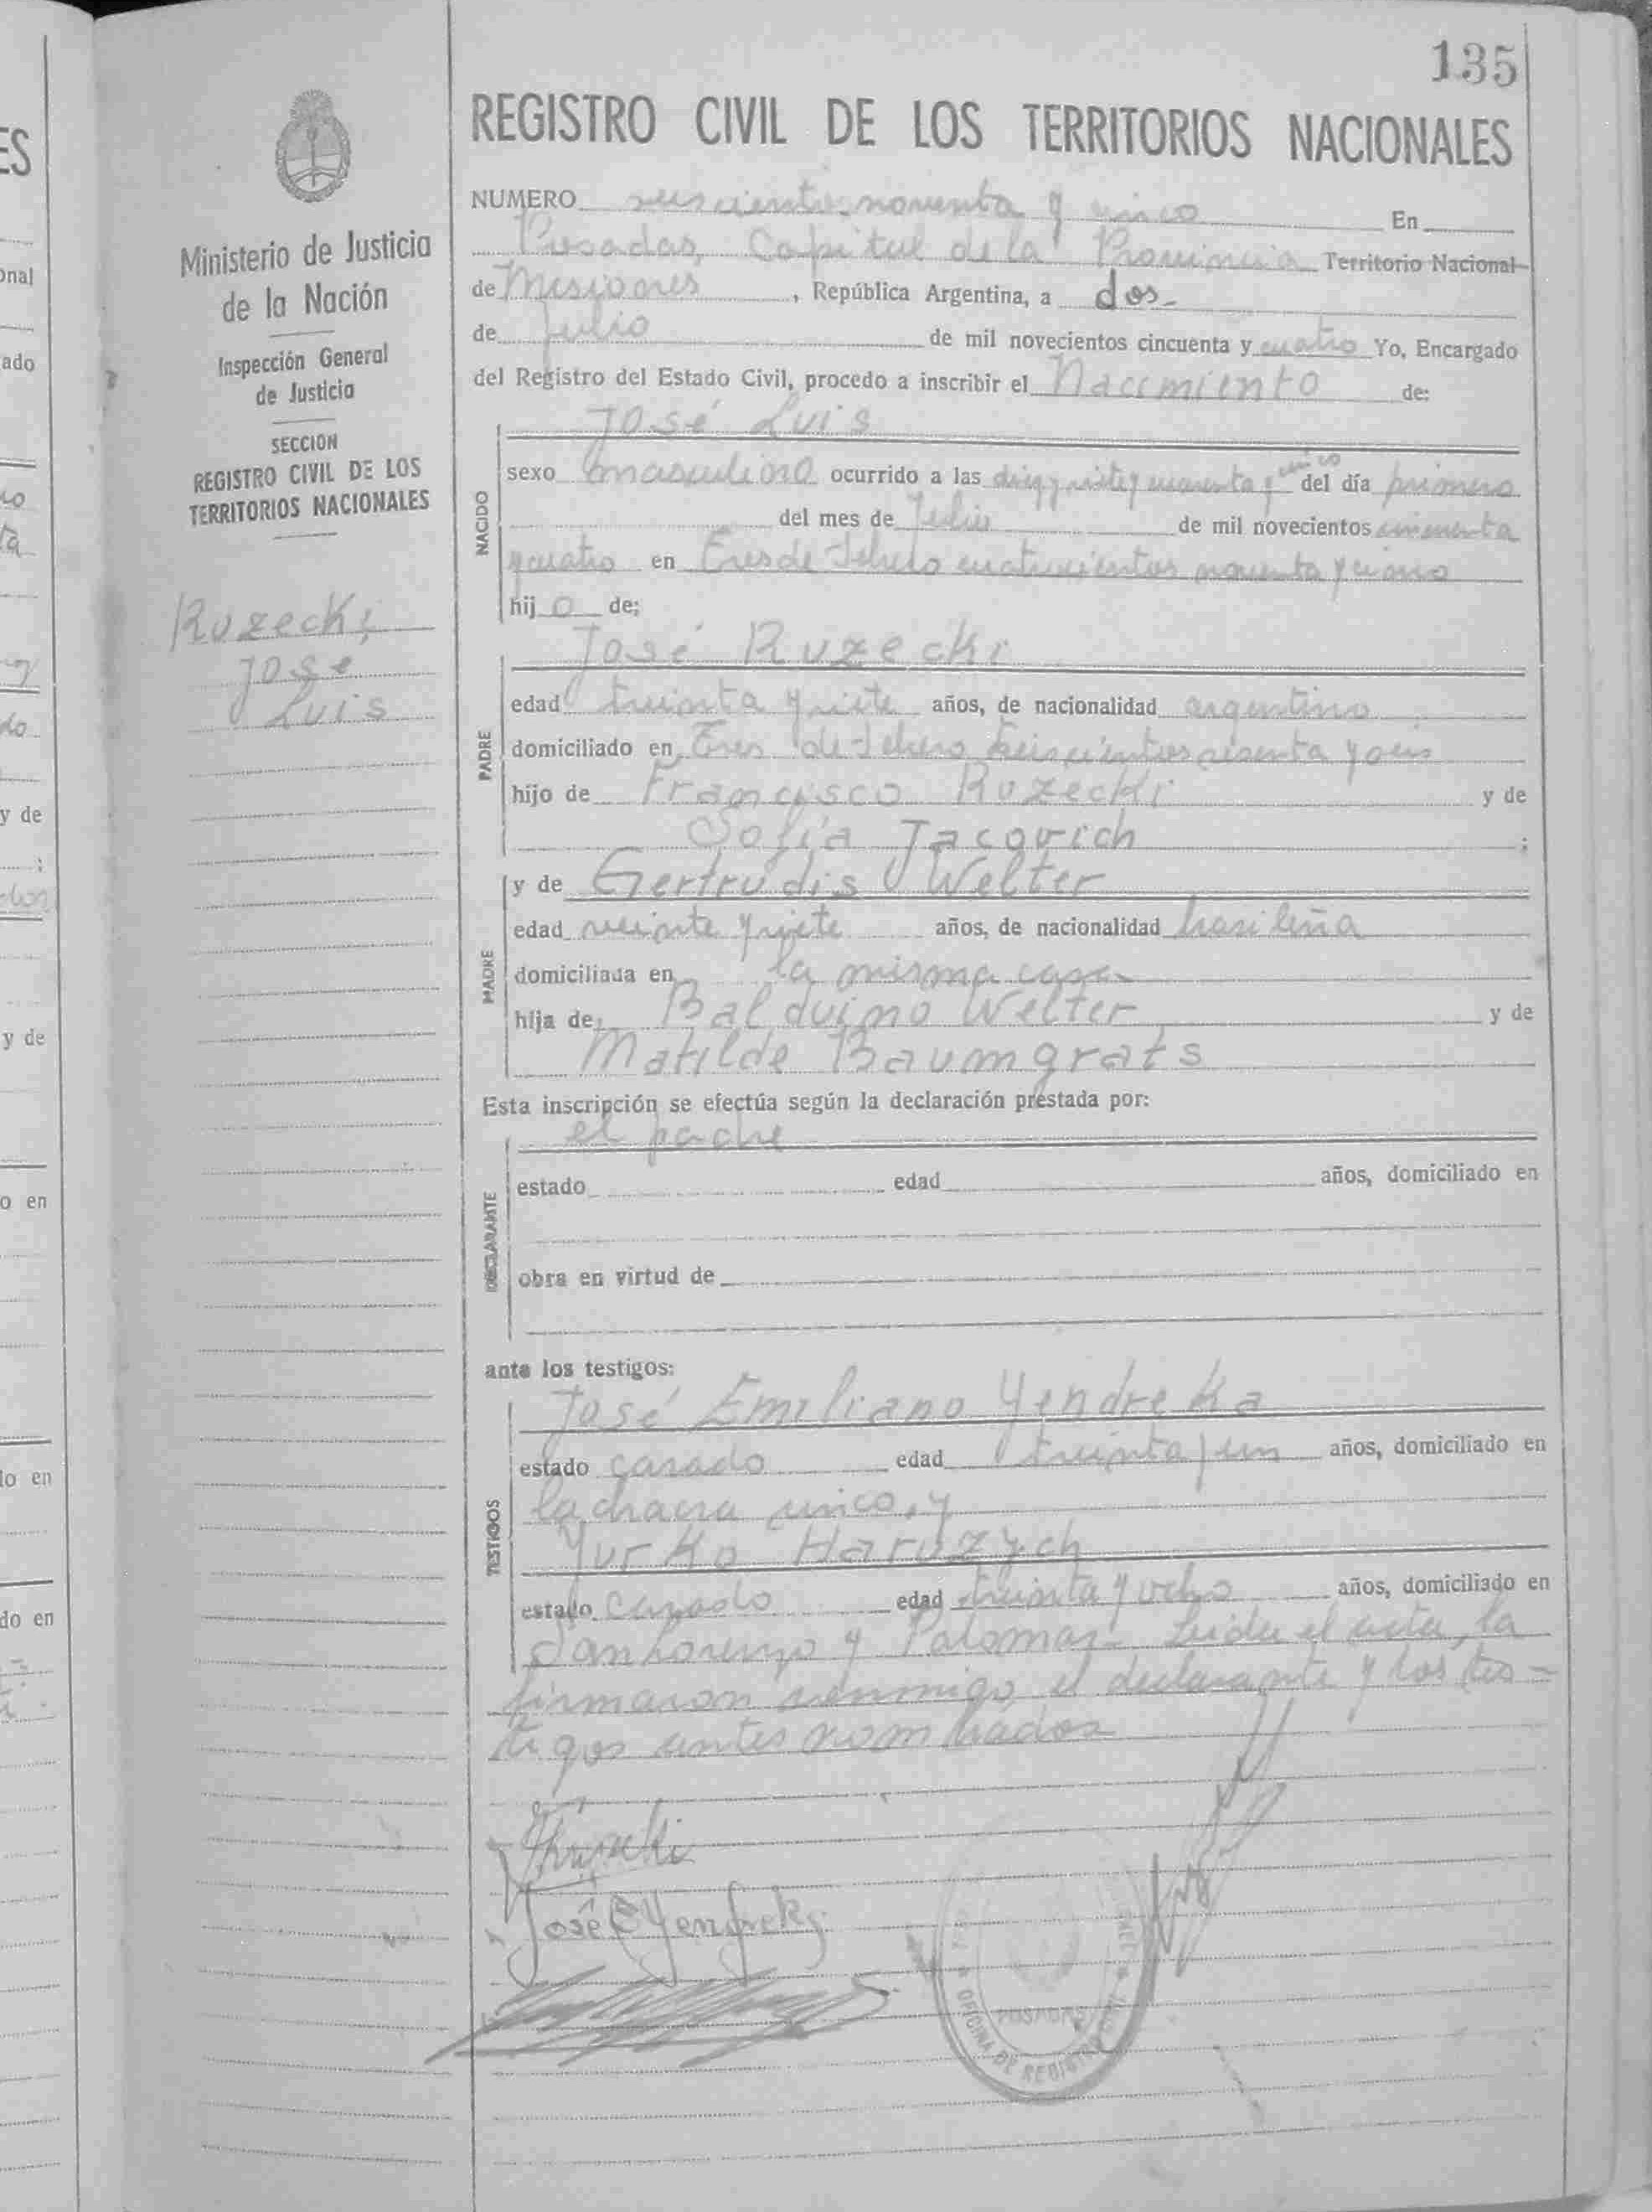 135
REGISTRO CIVIL DE LOS TERRITORIOS NACIONALES
Ministerio de Justicia
de la Nación
Inspección General
de Justicia
SECCION
REGISTRO CIVIL DE LOS
TERRITORIOS NACIONALES
Ruzecki
José
Luis
NUMERO seiscientos noventa y cinco En
Posadas, Capital de la Provincia Territorio Nacional
de Misiones, República Argentina, a dos
de Julio de mil novecientos cincuenta y cuatro Yo, Encargado
del Registro del Estado Civil, procedo a inscribir el Nacimiento de:
José Luis
NACIDO
sexo masculino ocurrido a las diez y siete y cuarenta y cinco del día primero
del mes de Julio de mil novecientos cincuenta
y cuatro en Tres de Febrero cuatrocientos noventa y cinco
hijo de;
José Ruzecki
PADRE
edad treinta y siete años, de nacionalidad argentino;
domiciliado en Tres de Febrero seiscientos sesenta y seis
hijo de Francisco Ruzecki y de
Sofía Jacovich;
MADRE
y de Gertrudis Welter
edad veinte y siete años, de nacionalidad brasileña
domiciliada en la misma casa
hija de Balduino Welter y de
Matilde Baumgrats
Esta inscripción se efectúa según la declaración prestada por:
el padre
DECLARANTE
estado edad años, domiciliado en
obra en virtud de
ante los testigos:
José Emiliano Yendreka
TESTIGOS
estado casado edad treinta y un años, domiciliado en
la chacra cinco, y
Yurko Haruzych
estado casado edad treinta y ocho años, domiciliado en
San Lorenzo y Palomar. Leida el acta, la
firmaron conmigo el declarante y los tes-
tigos antes nombrados
José E Yendreka
OFICINA DE REGISTRO CIVIL
POSADAS